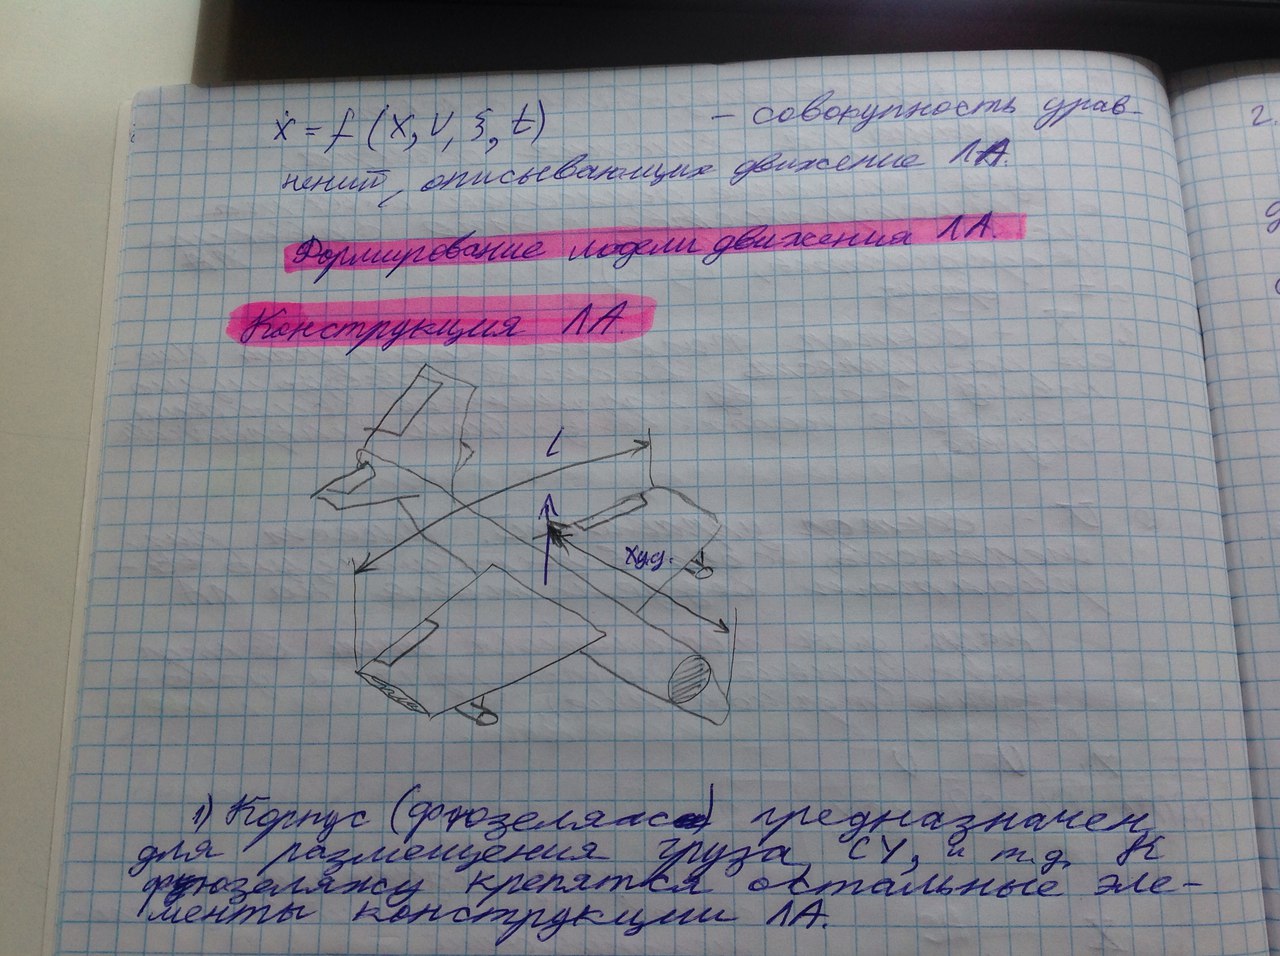 ẋ = f (x, u, ξ, t) – совокупность урав-
нений, описывающих движение ЛА.
Формирование модели движения ЛА.
Конструкция ЛА.
L
Хц.д.
1) Корпус (фюзеляж) предназначен
для размещения груза, СУ, и т.д. К
фюзеляжу крепятся остальные эле-
менты конструкции ЛА.
2.